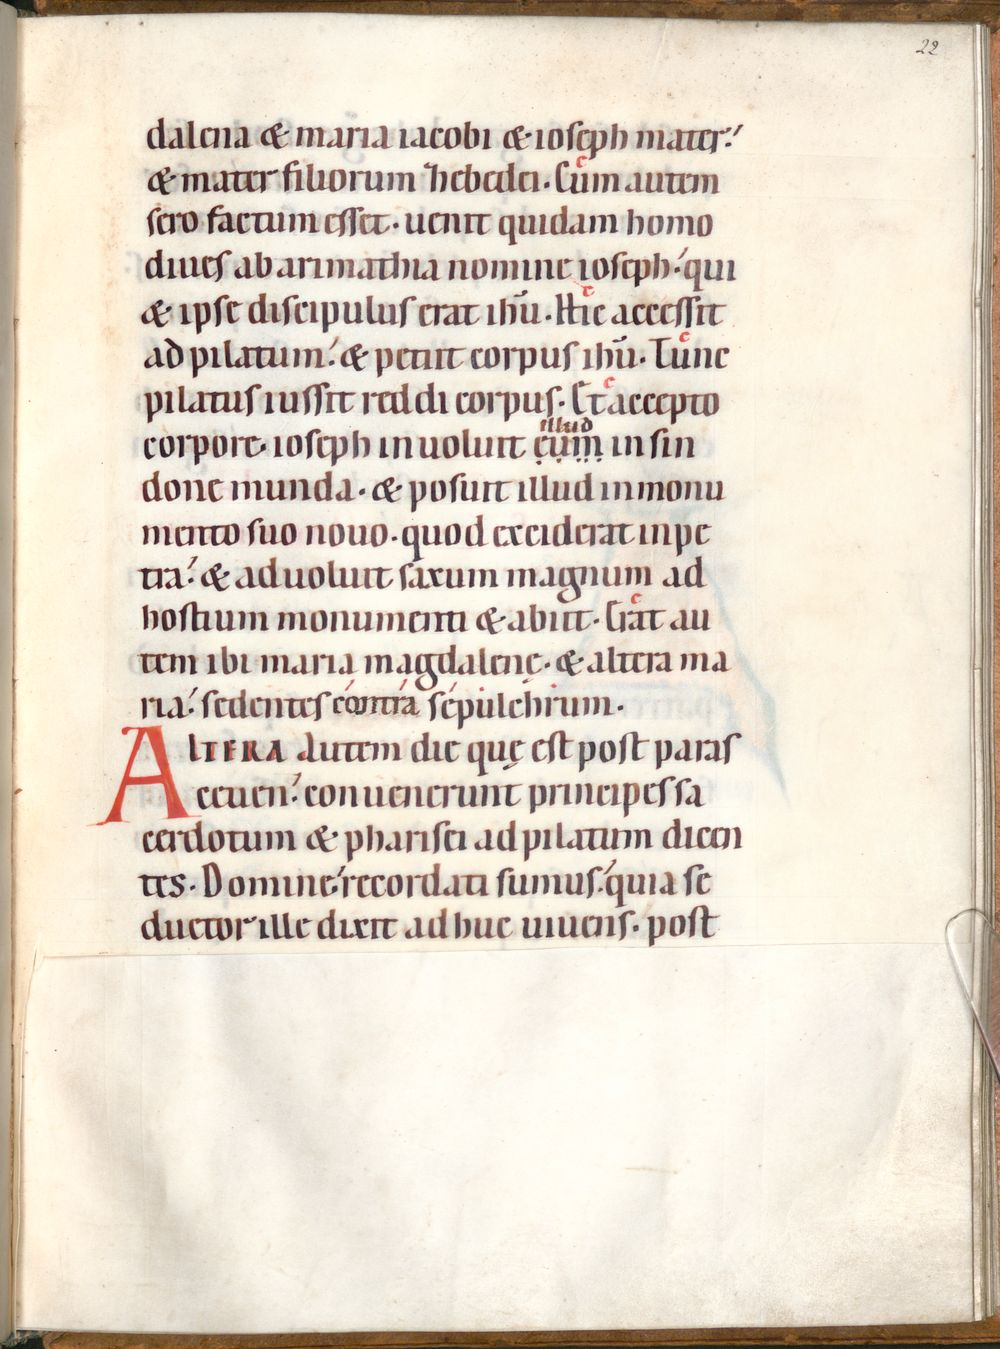 22
dalena & maria iacobi & ioseph mater.
& mater filiorum hebedei. Cum autem
sero factum esset. uenit quidam homo
diues ab arimathia nomine ioseph. qui
& ipse discipulus erat ihū. Hic accessit
ad pilatum. & petiit corpus ihū. Tunc
pilatus iussit reddi corpus. Et accepto
illud
corpore. ioseph inuoluit eum in sin
done munda. & posuit illud in monu
mento suo nouo. quod exciderat in pe
tra. & aduoluit saxum magnum ad
hostium monumenti & abiit. Erat au
tem ibi maria magdalenę. & altera ma
ria. sedentes contra sepulchrum.
ALTERA autem die quę est post paras
ceuen. conuenerunt principes sa
cerdotum & pharisei ad pilatum dicen
tes. Domine recordati sumus. quia se
ductor ille dixit adhuc uiuens. post